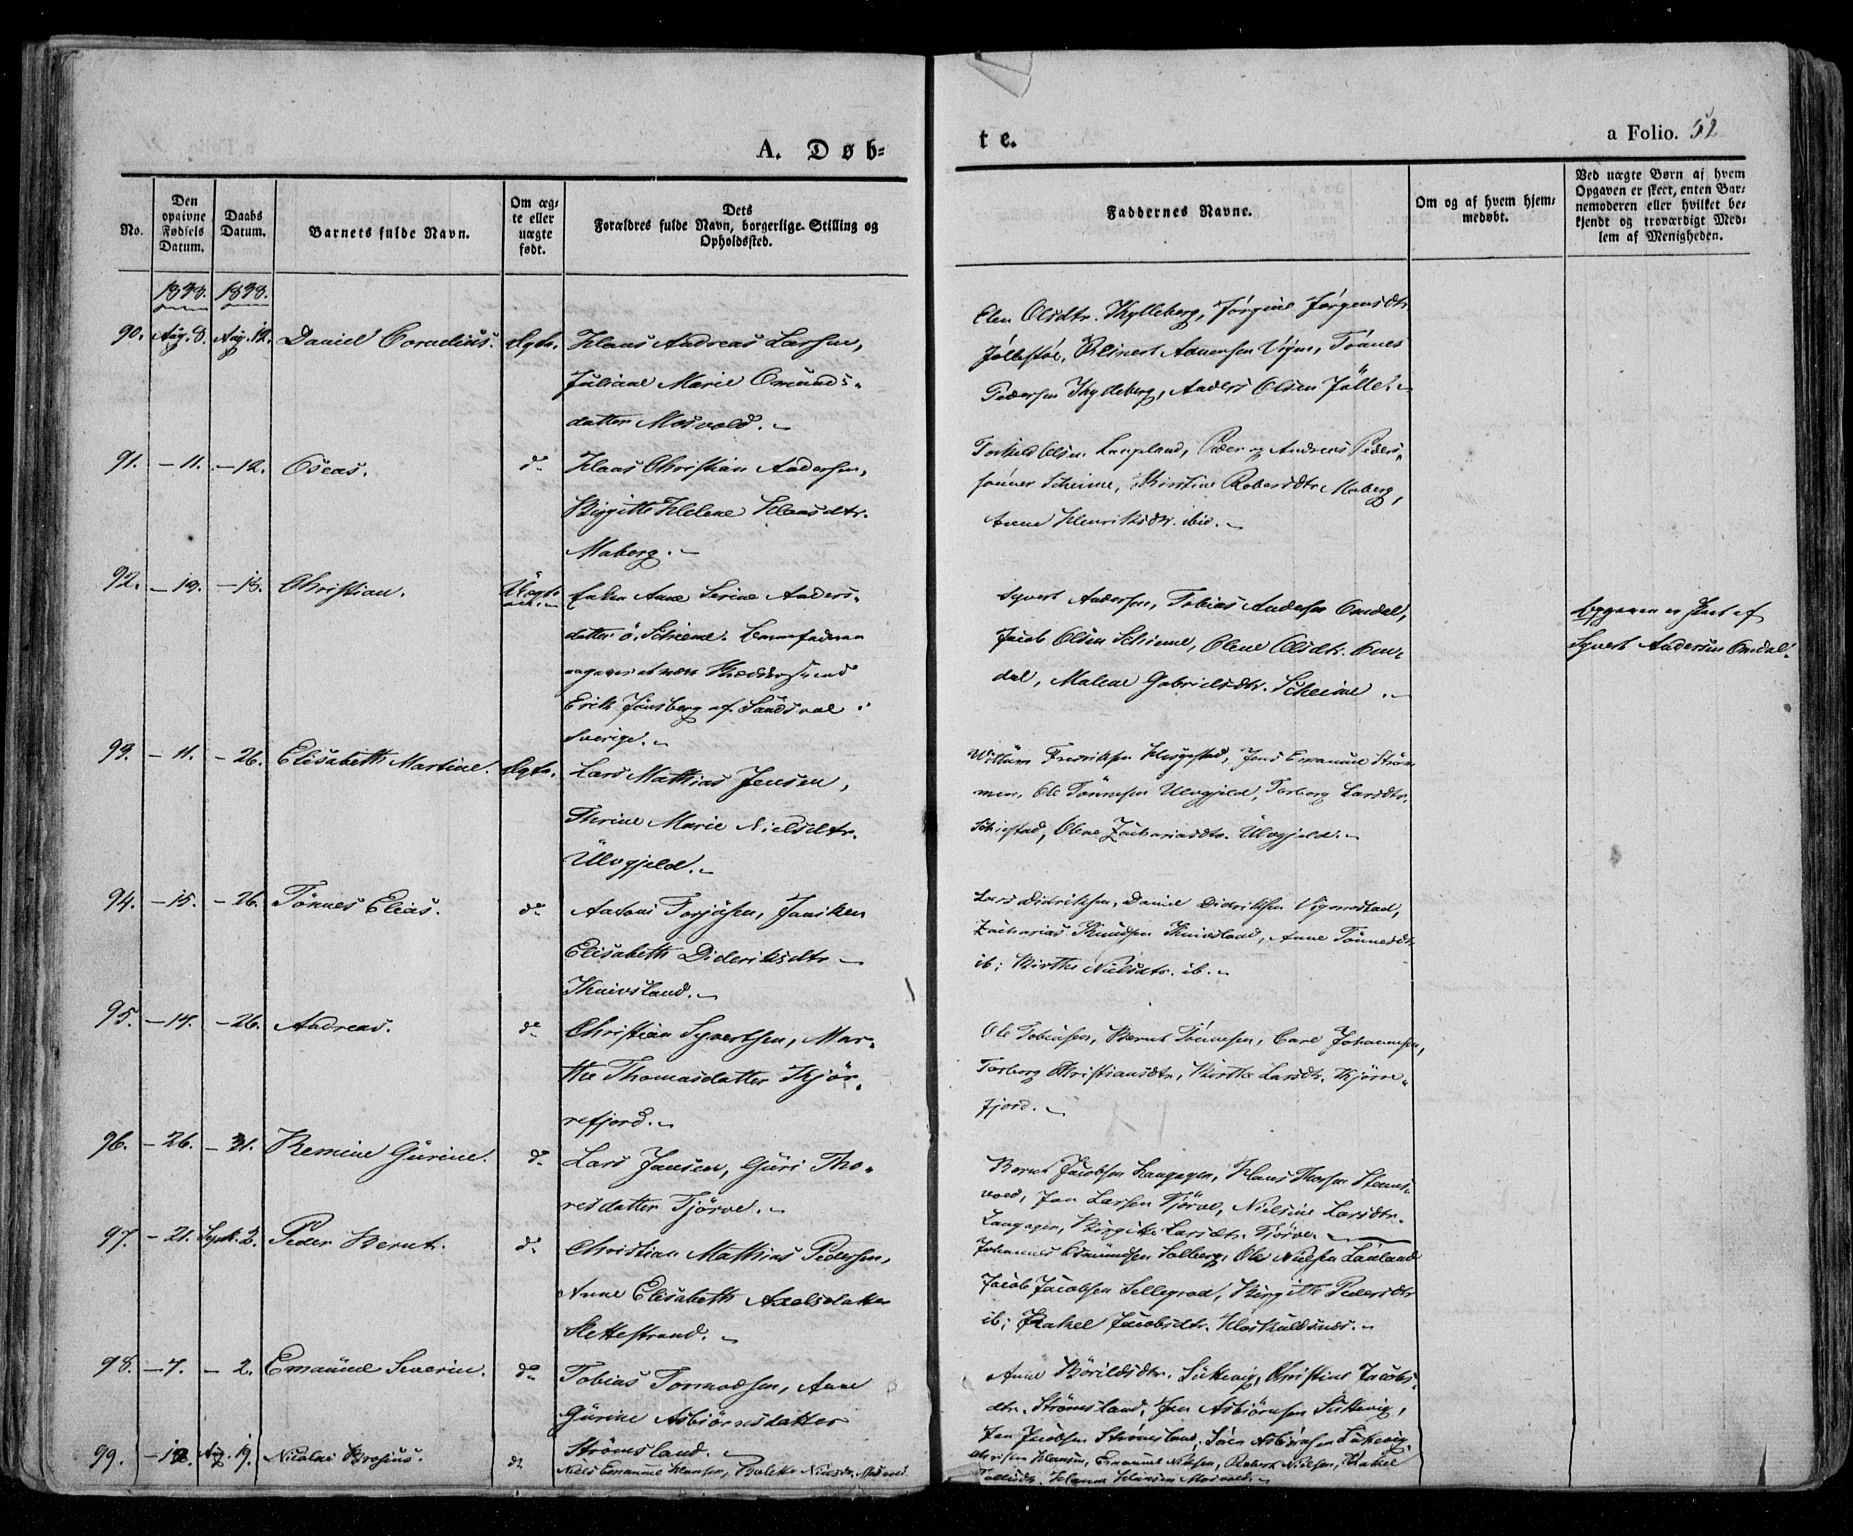 A. Døb-
te.
a Folio. 52
No.
Den opgivne Fødsels Datum.
Daabs Datum.
Barnets fulde Navn.
Om ægte eller uægte født.
Dets Forældres fulde Navn, borgerlige Stilling og Opholdssted.
Faddernes Navne.
Om og af hvem hjemmedøbt.
Ved uægte Børn af hvem Opgaven er skeet, enten Barnemoderen eller hvilket bekjendt og troværdigt Medlem af Menigheden.
1838. 1838.
90. Aug. 8. Aug. 12. Daniel Cornelius. Ægte. Klaus Andreas Larsen,
Juliane Marie Omunds-
datter Mosvold.
Elen Olsdtr. Kylleberg, Jørgine Jørgensdtr
Jøllestøl, Reinert Tønnes
Pedersen Kylleberg, Anders Olsen Jølle.
91. – 11. – 12. Oseas. do Klaas Christian Andersen,
Birgitte Helene Klaasdtr.
Maberg.
Torkild Olsen Langeland, Peder og Andreas Peders-
sønner Scheime, Kirstine Robersdtr. Maberg,
Anne Henriksdtr. ibid.
92. – 12. – 18. Christian. Uægte. Enken Anne Serine Anders-
datter ø. Scheime. Barnefader
angives at være
Erik Jönsberg af Sandsval i
Sverige.
Syvert Andersen, Tobias Andersen Omdal,
Jacob Olsen Scheime, Olene Olsdtr. Om-
dal, Malene Gabrielsdtr. Scheime.
Opgaven er skeet af
Syvert Andersen Omdal.
93. – 11. – 26. Elisabeth Martine. Ægte. Lars Mathias Jensen,
Thrine Marie Nielsdtr.
Ulvgjeld.
Willum Fredriksen Jens Emanuel Strøm-
men, Ole Tønnesen Ulvgjeld, Torborg Larsdtr.
Schiestad, Olene Zachariasdtr. Ulvgjeld.
94. – 15. – 26. Tønnes Elias. do Antoni Torjusen, Jansken
Elisabeth Dideriksdtr
Knivsland.
Lars Didriksen, Daniel Didriksen Vigmostad,
Zacharias Knudsen Knivsland, Anne Tønnesdtr
ib; Birthe Nielsdtr. ib.
95. – 17. – 26. Andreas. do Christian Syvertsen, Mar-
the Thomasdatter Kjør-
refjord.
Ole Tobiasen, Bernt Tønnesen, Carl Johannesen,
Torborg Christiansdtr, Birthe Larsdtr. Kjørre-
fjord.
96. – 26. – 31. Bemine Gurine. do Lars Jansen, Guri Tho-
resdatter Tjørve.
Bernt Jacobsen Langager, Klaus
vold, Jan Larsen Tjørve, Nielsine Larsdtr.
Langager, Birgitte Larsdtr. Tjørve.
97. – 21. Sept. 2. Peder Bernt. do Christian Mathias Pedersen,
Anne Elisabeth Axelsdatter
Slettestrand.
Johannes Osmundsen Solberg, Ole Nielsen Lauland
Jacob Jacobsen Sellegrod, Birgitte Pedersdtr
ib; Rakel Jacobsdtr. Hoskuldsnes.
98. – 7. – 2. Emanuel Severin. do Tobias Tormodsen, Anne
Gurine Asbiörnsdatter
Strömsland.
Anne Böriledsdtr. Sukevig, Christine Jacobs-
dtr. Strömsland, Jan Asbiörnsen Sukevig,
Jan Jacobsen Strömsland, Sören Asbiörnsen Sukevig.
99. – 12. Aug. 19. Nicolai Brosius. do Niels Emanuel Hansen, Nielsdtr. Mosvold
Hansen, Emanuel Nielsen, Robert Nielsen, Rakel
Tollisdtr. Hansen Mosvold.